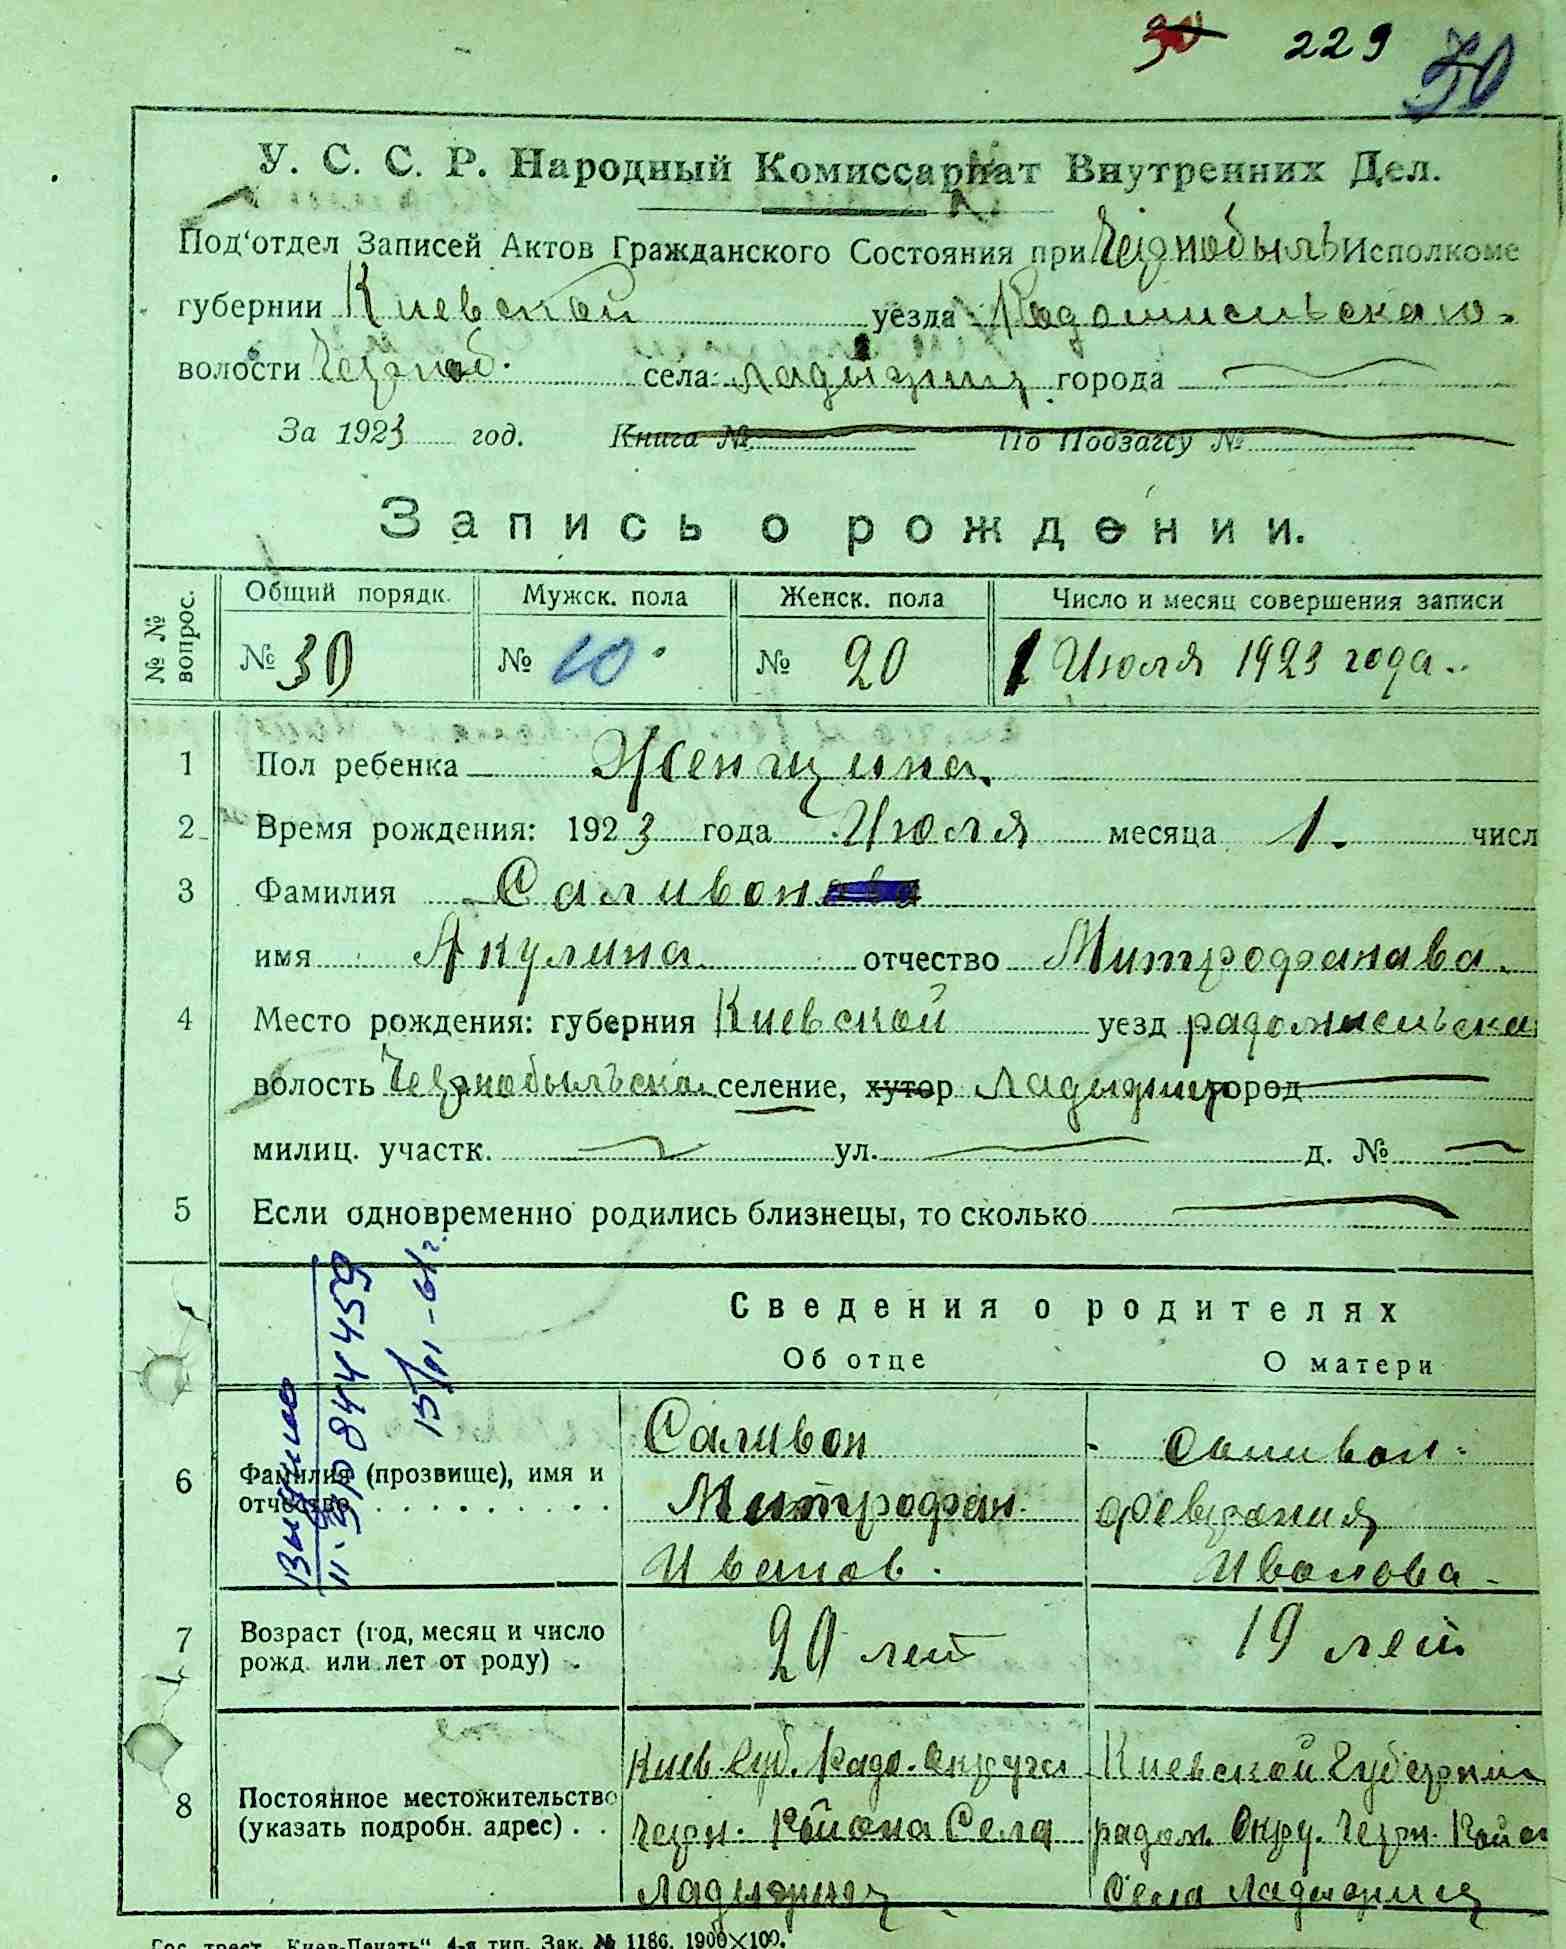 30 229 50
У. С. С. Р. Народный Комиссариат Внутренних Дел.
Под'отдел Записей Актов Гражданского Состояния при Чернобыль Исполкоме
губернии Киевской уезда Радомисльскаго
волости Черноб. села Ладыжич города
За 1923 год. Книга № По Подзагсу №
Запись о рождении.
№№ вопрос. Общий порядк. Мужск. пола Женск. пола Число и месяц совершения записи
№ 30 № 10 № 20 1 Июля 1923 года.
1 Пол ребенка Женщина.
2 Время рождения: 1923 года Июля месяца 1. числ
3 Фамилия Саливон
имя Акулина отчество Митрофанава.
4 Место рождения: губерния Киевской уезд радомисльска
волость Чернобыльска селение, хутор Ладыжич город
милиц. участк. ул. д. №
5 Если одновременно родились близнецы, то сколько
Сведения о родителях
Об отце О матери
6 Фамилия (прозвище), имя и отчество
Саливон Саливон
Митрофан Феврония
Иванов. Иванова
7 Возраст (год, месяц и число рожд. или лет от роду) 20 лет 19 лет
8 Постоянное местожительство (указать подробн. адрес)
Киев. Губ. Радо. Округа Киевской Губернии
Черн. Района Села радом. Окру. Черн. Район
Ладыжич Села Ладыжич
Гос. трест „Киев-Печать“ 4-я тип. Зак. № 1186. 1900×100.